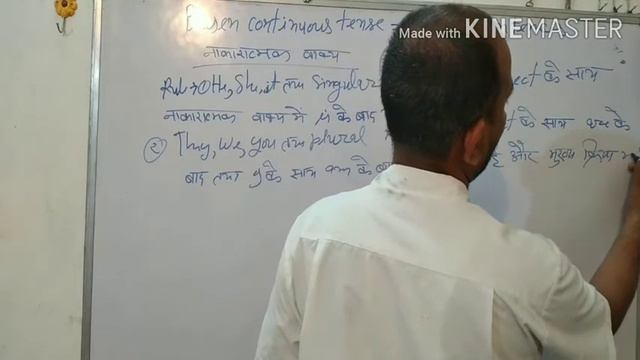 Made with KINEMASTER
continuous tense
नाकारात्मक वाक्य
Rul → ① He, She, it तथा Singular ect के साथ
नाकारात्मक वाक्य में is के बाद के साथ am के
② They, We, you तथा plural
बाद तथा I के साथ am के बाद और मुख्य क्रिया में